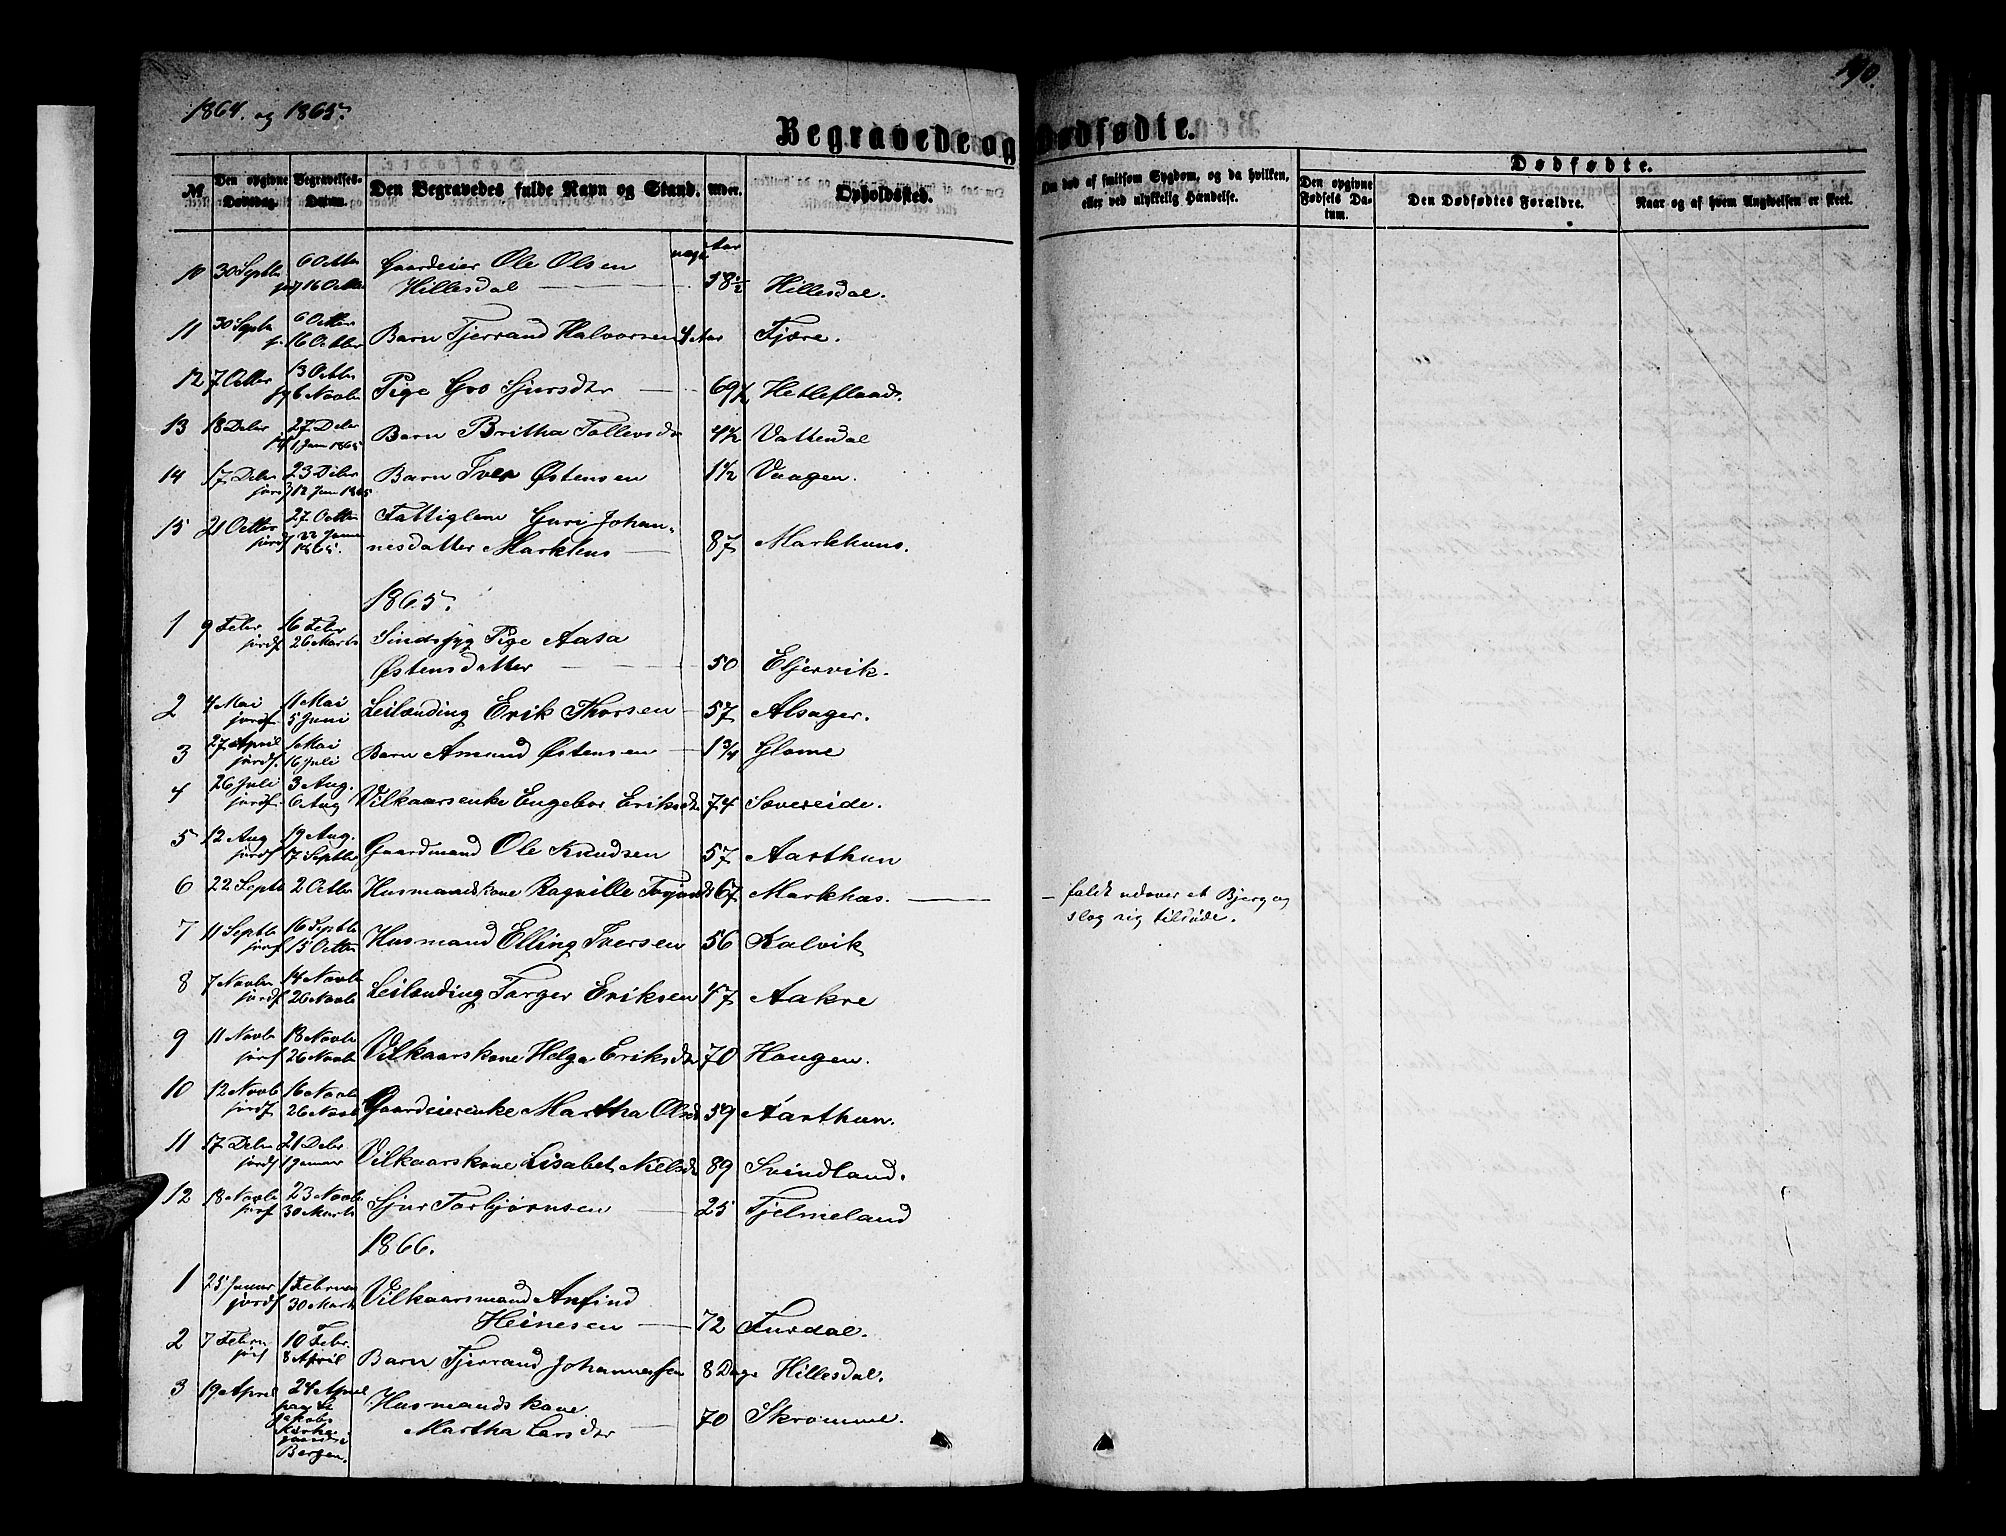 1864. og 1865.
190.
Begravede og Dødfødte.
Dødfødte.
No. Den opgivne Dødsdag. Begravelses-Datum. Den Begravedes fulde Navn og Stand. Alder. Opholdssted. Om død af smitsom Sygdom, og da hvilken, eller ved ulykkelig Hændelse. Den opgivne Fødsels Datum. Den Dødfødtes Forældre. Naar og af hvem Angivelsen er skeet.
Aar
10 30 Septbr 6 Octbr Gaardeier Ole Olsen
16 Octbr Hillesdal 58½ Hillesdal.
11 30 Septb 6 Octbr
16 Octbr Barn Tjerrand Halvorsen 4 Aar Fjære.
12 7 Octbr 13 Octbr
6 Novbr Pige Gro Sjursdtr 69½ Hetleflaad.
13 18 Debr 27 Debr
1 Jan 1865 Barn Britha Tollevsdr 4½ Vattendal
14 17 Debr 23 Debr Barn Iver Østensen 1½ Vaagen.
jordf 12 Jan 1865
15 21 Octbr 27 Octbr Fattiglem Guri Johan-
jordf 22 Januar 1865. nesdatter Markhus 87 Markhuus.
1865.
1 9 Febr 16 Febr
jordf 26 Marts Sindssyg Pige Aasa
Østensdatter 50 Eljervik.
2 4 Mai 11 Mai
jordf. 5 Juni Leilænding Erik Thorsen 57 Alsager.
3 27 April 1 Mai
jordf. 16 Juli Barn Amund Østensen 1¾ Glome
4 26 Juli 3 Aug.
jordf 6 Aug Vilkaarsenke Engebor Eriksdr 74 Sævereide.
5 12 Aug 19 Aug.
jordf 17 Septbr Gaardmand Ole Knudsen 57 Aarthun
6 22 Septb 2 Octbr Husmandskone Ragnille 67 Markhus.
faldt udover et Bjerg og
slog sig tildøde.
7 11 Septbr 16 Septbr
jordf 15 Octbr Husmand Elling Iversen 56 Kalvik
8 7 Novbr 14 Novbr
jordf 26 Novbr Leilænding Torger Eriksen 47 Aakre
9 11 Novbr 18 Novbr
jordf 26 Novbr Vilkaarskone Helga Eriksdr 70 Haugen.
10 12 Novbr 16 Novbr
jordf 26 Novb Gaardeierenke Martha Olsd 59 Aarthun.
11 17 Debr 21 Debr
jordf 1 Januar Vilkaarskone Lisabet Nielsdr 89 Svindland.
12 18 Novbr 23 Novbr
jordf 30 Marts Sjur Torbjørnsen 25 Fjelmeland
1866.
1 25 Januar 1 Februar
jordf 30 Marts Vilkaarsmand Anfind
Heinesen 72 Furdal.
2 7 Februar 10 Febr.
jordf 8 April Barn Tjerrand Johannessen 8 Dage Hillesdal.
3 19 April 24 April Husmandskone
paa St Jakobs Kirkegaard i Bergen.
Martha Larsdtr 70 Skromme.